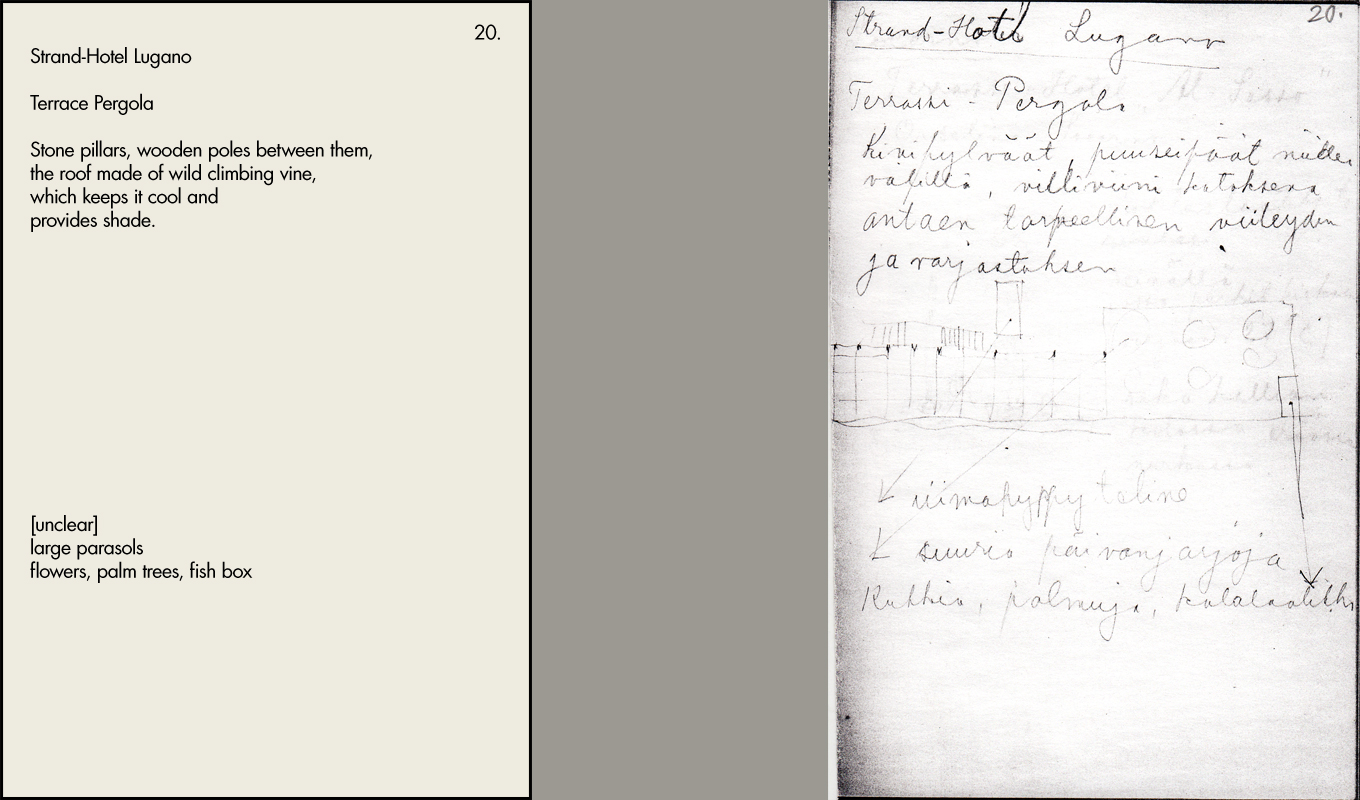 20.
Strand-Hotel Lugano
Terrace Pergola
Stone pillars, wooden poles between them,
the roof made of wild climbing vine,
which keeps it cool and
provides shade.
[unclear]
large parasols
flowers, palm trees, fish box
20.
Strand-Hotel Lugano
Terassi - Pergola
Kivipylväät, puuseipäät niitten
välillä, villiviini katoksena
antaen tarpeellisen viileyden
ja varjostuksen
uimahyppy teline
suuria päivänvarjoja
Kukkia, palmuja, kalalaatikko